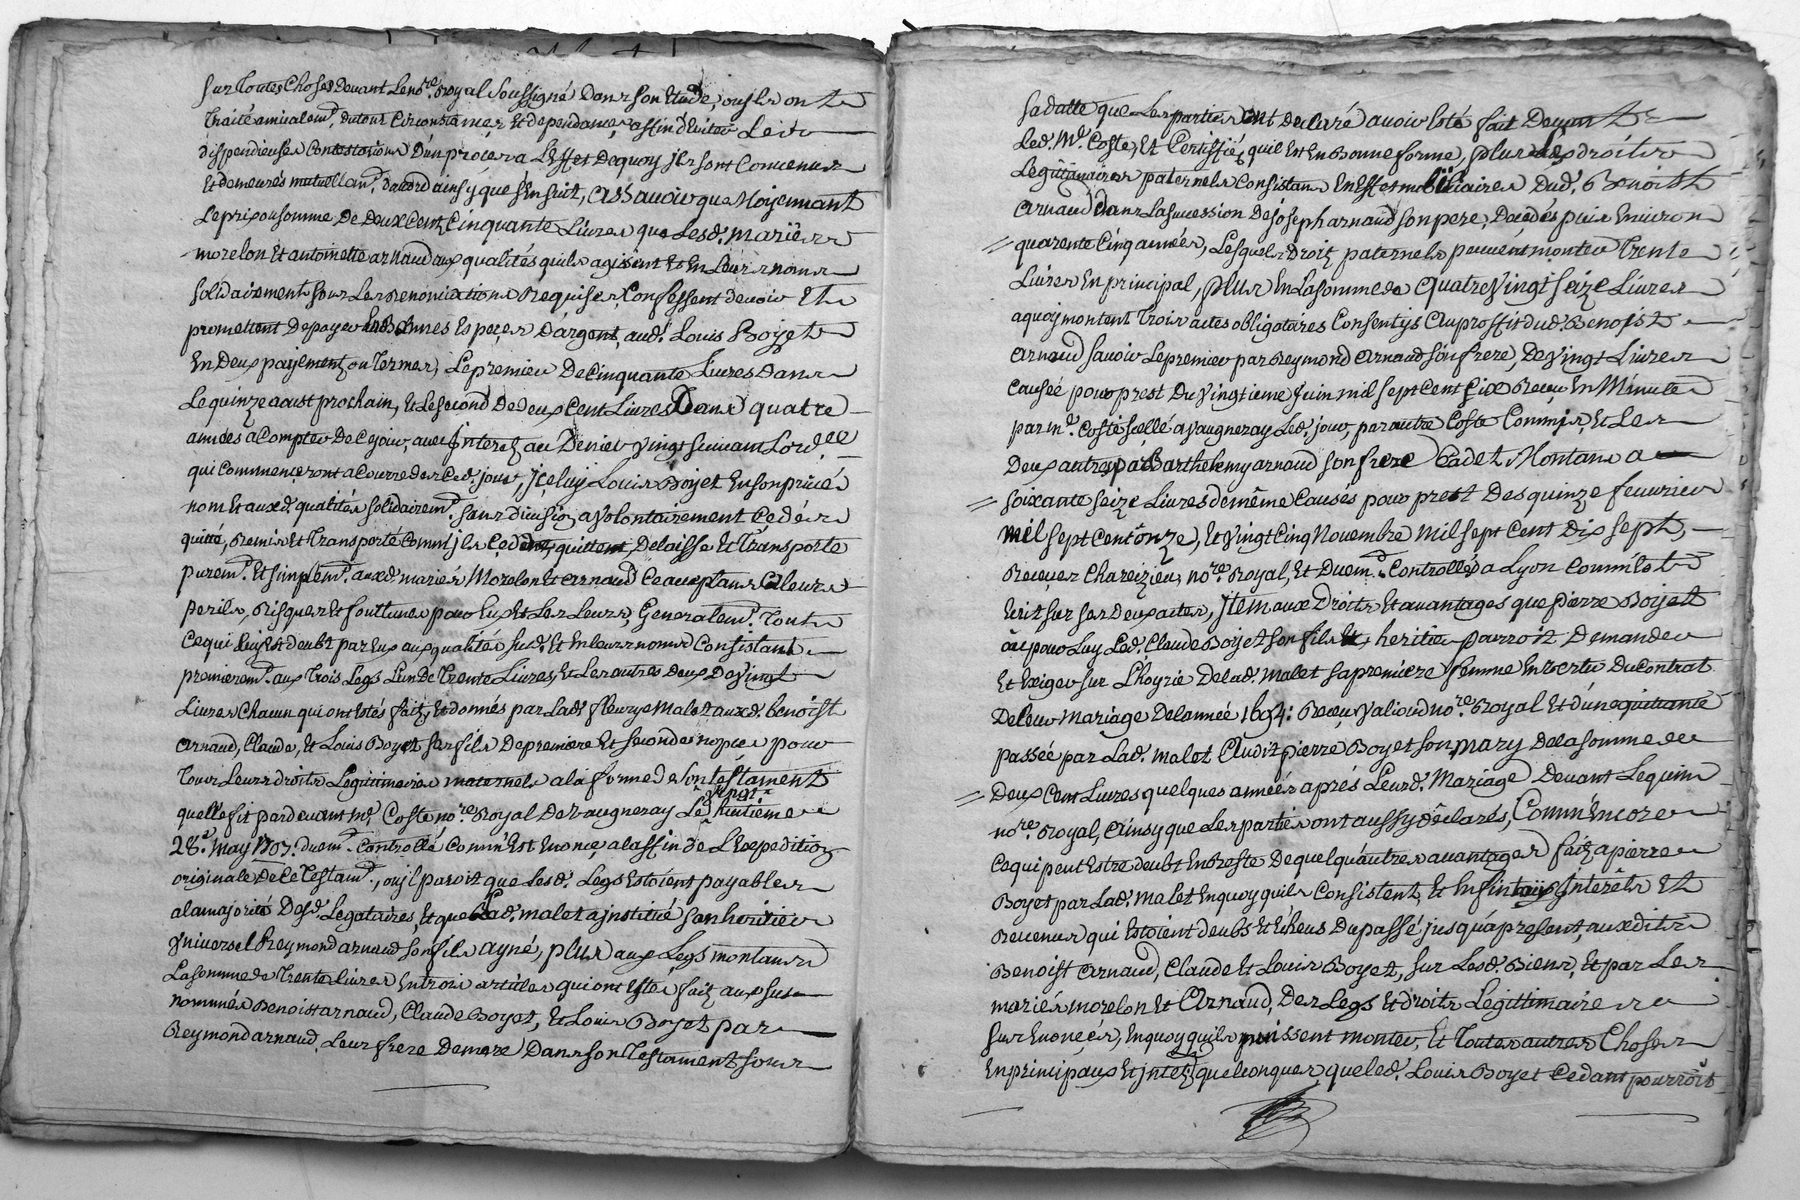 Sur Toutes Choses Devant Le no.re Royal Soussigné Dans son Etude, ou ils ont
Traité amiablem.t, du tout Circonstances Et dependances affin d'Eviter Les
dispendieuses Contestations D'un procès a L'Effet Dequoy jls sont Convenus
Et demeurés mutuellem.t, d'accord ainsy que s'Ensuit, Assavoir que Moyennant
Le prix ou somme De Deux Cent Cinquante Livres que Lesd. mariés
morelon Et antoinette arnaud aux qualités quils agissent Et En Leurs noms
solidairement sous Les Renonciations Requises Confessent devoir Et
promettent De payer En Bonnes Espeçes D'argent, aud. Louis Boyet
En Deux payements ou Termes, Le premier De Cinquante Livres Dans
Le quinze aoust prochain, Et Le second De deux Cent Livres Dans quatre
années a Compter De Cejour, avec Jnterez au Denier vingt suivant Lord.ce
qui Commençeront a Courre des Ced. jour, Jçeluy Louis Boyet En son privé
nom Et auxd. qualités solidairem.t sans division a volontairement Çedé
quitté, Remis Et Transporté Comm' jls Çedent, quittent, Delaisse Et Transporte
purem.t Et simplem.t auxd. mariés Morelon Et arnaud Ce acceptans a Leurs
perils, Risques Et fortunes pour Eux Et Les Leurs, Generalem.t Tout
Ce qui Luy Est deubt par Eux aux qualités sud. Et En Leurs noms Consistant
premierem.t aux Trois Legs L'un De Trente Livres, Et Les autres Deux De vingt
Livres Chacun qui ont Estés faitz, Et donnés par Lad. fleurye Malet auxd. benoist
arnaud, Claude, Et Louis Boyet ses fils De premiere Et seconde nopces pour
Tous Leurs droits Legitimaires maternels a la forme de son testament
quelle fit pardevant M.e Coste no.re Royal De vaugneray Le vingt huitieme
28.e may 1707. Duem.t Controllé Comm' Est Enoncé a la fin de L'Expedition
originale de Ce Testam.t, ou jl paroit que Lesd. Legs Estoient payables
a la majorité Desd. Legataires, Et que Lad. malet a jnstitué son heritier
Universel Reymond arnaud son fils ayné, plus aux Legs montans
La somme de Trente Livres En trois articles qui ont Estés faitz aux sus
nommés Benoist arnaud, Claude Boyet, Et Louis Boyet par
Reymond arnaud, Leur frere De mere Dans son Testament sous
sa datte que Les parties ont declaré avoir Esté fait Devant
Led. M.e Coste, Et Certiffié, quil Est En Bonne forme, plus Les droits
Legitimaires paternels Consistans En Effets mobiliaires Dud. Benoist
arnaud dans La succession De joseph arnaud son pere, Decedé depuis Environ
quarente Cinq années, Lesquels Droitz paternels peuvent monter Trente
Livres En principal, plus En La somme de quatre vingt seize Livres
a quoy montent Trois actes obligatoires Consentys Au proffit dud. Benoist
arnaud savoir Le premier par Reymond arnaud son frere, De vingt Livres
Causée pour prest Du vingtieme juin mil sept Cent Reçu En Minute
par m.e Coste sçellé a vaugneray Led. jour, par autre Coste Commis, Et Les
Deux autres par Barthelemy arnaud son frere Cadet Montans a
soixante seize Livres de même Causés pour prest Des quinze fevrier
mil sept Cent onze, Et vingt Cinq Novembre mil sept Cent Dix sept,
Reçues Chareizieu no.re Royal, Et Duem.t Controllé a Lyon
Ecrit sur ses deux actes, Jtem aux Droits Et avantages que pierre Boyet
ou pour Luy Led. Claude Boyet son fils Et heritier pourroit Demander
Et Exiger sur L'hoyrie De lad. Malet sa premiere femme En vertu Du Contrat
De leur Mariage De l'année 1694. Reçu no.re Royal Et d'une quittance
passée par Lad. malet Audit pierre Boyet son mary De la somme de
Deux Cent Livres quelques années aprés Leurd. Mariage Devant Lequin
no.re Royal, Ainsy que Les parties ont aussy déclarés, Comm' Encore
Ce qui peut Estre deubt En Reste De quelqu'autres avantages faitz a pierre
Boyet par Lad. Malet En quoy quils Consistent, Et Enfin aux Jnterêts Et
Revenus qui Estoient deubs Et Echeus Du passé jusqu'à present, auxdits
Benoist Arnaud, Claude Et Louis Boyet, sur Lesd. Biens, Et par Les
mariés Morelon Et Arnaud, Des Legs Et droits Legittimaires
sus Enonçés, En quoy quils puissent monter, Et Toutes autres Choses
En principaux Et jnterez quelconques, que Led. Louis Boyet Cedant pourroit